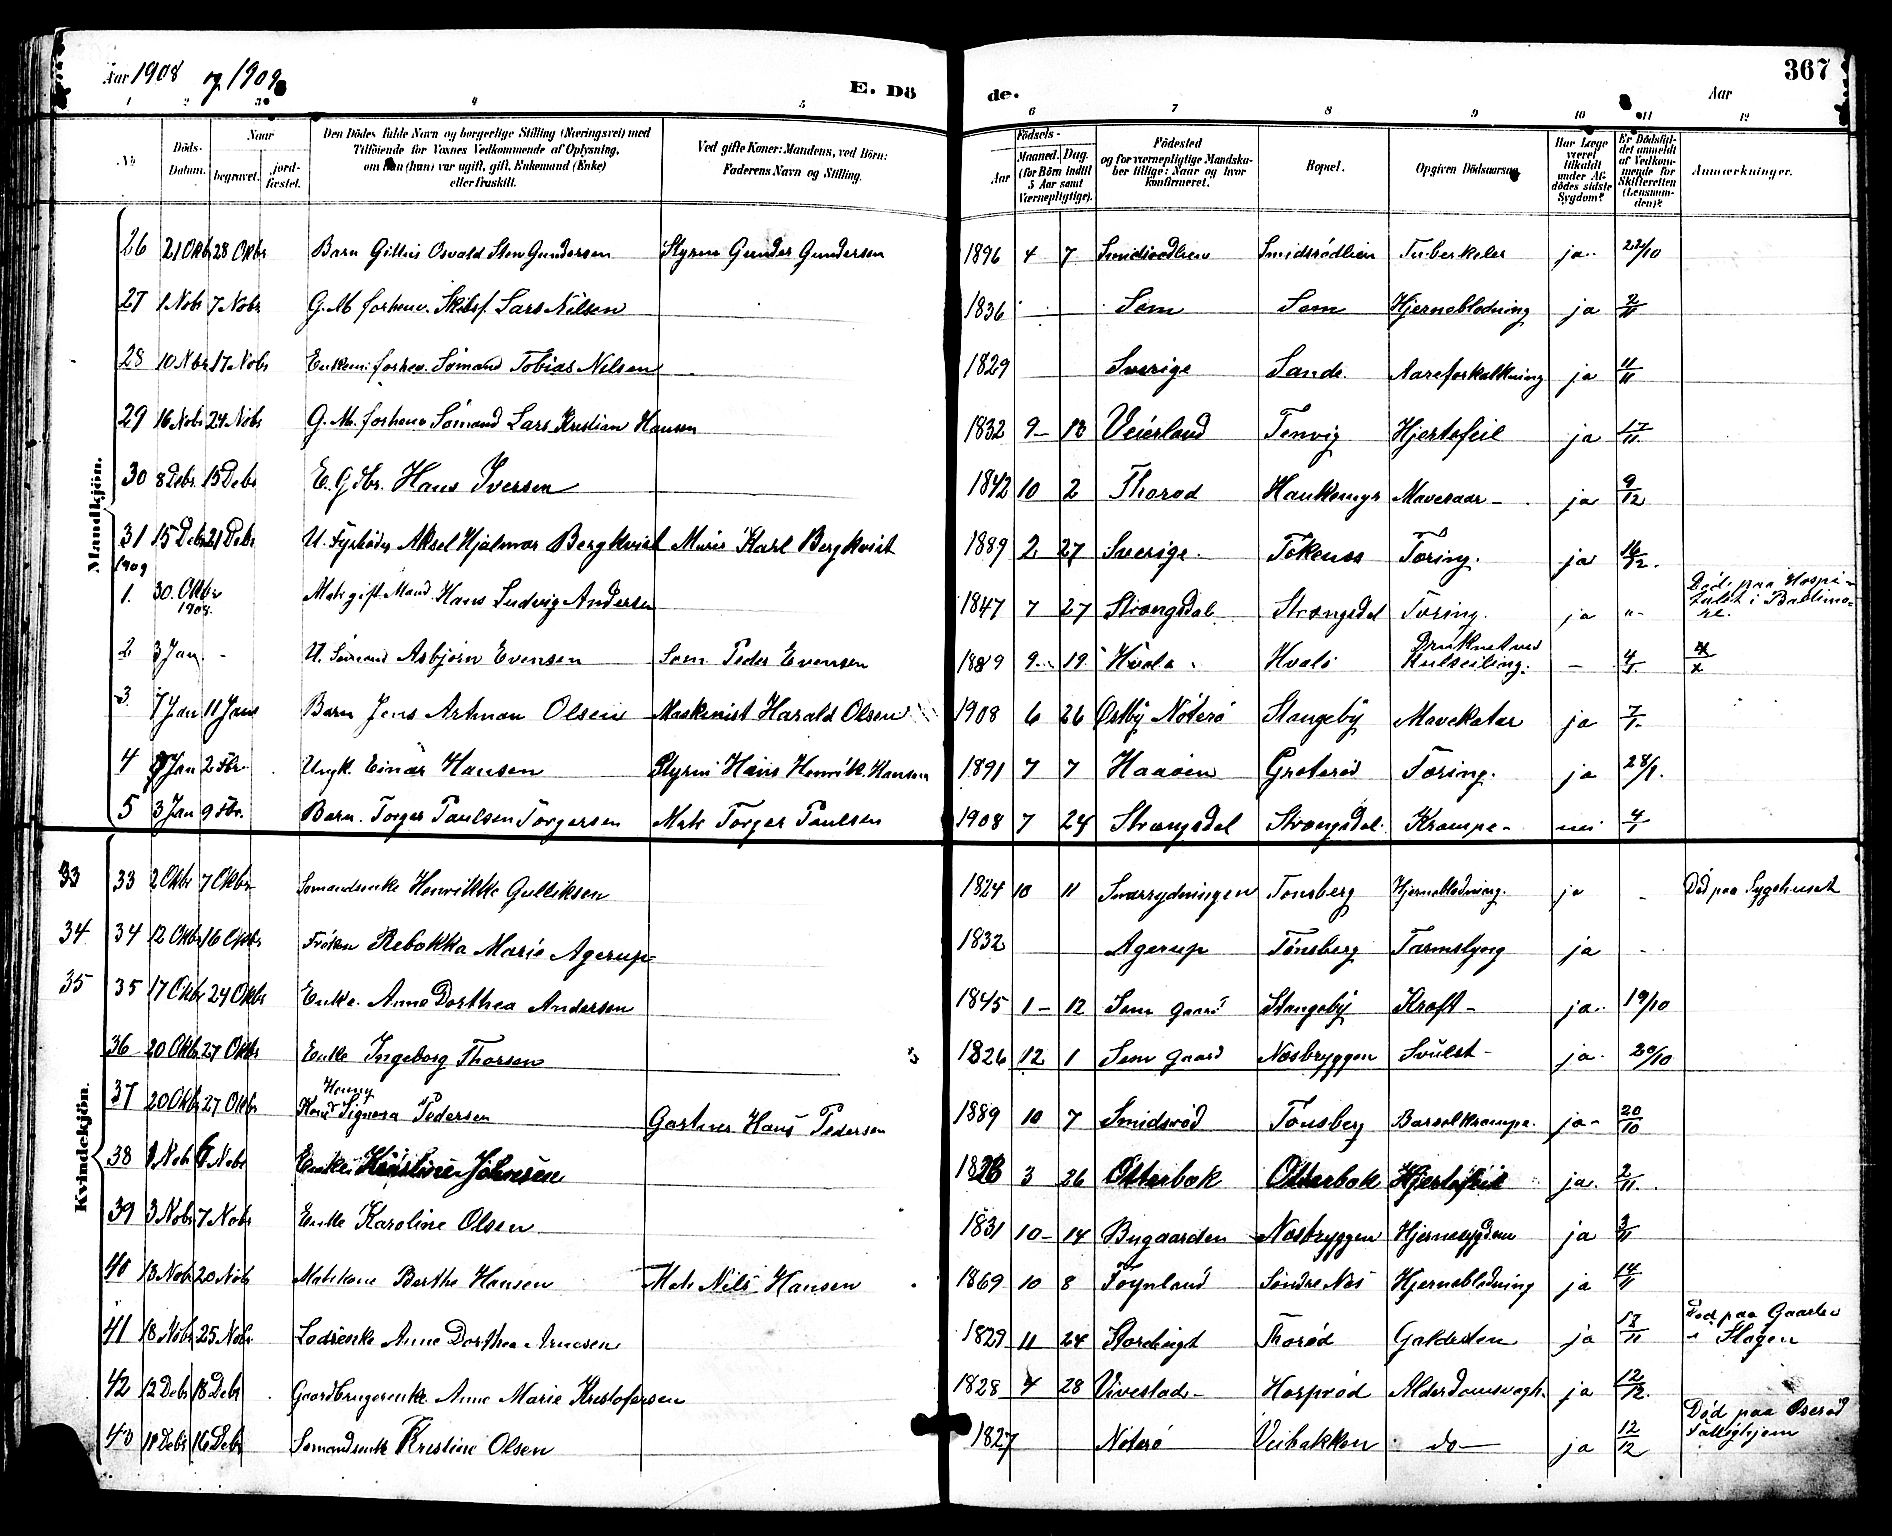 Aar 1908 og 1909
E. Dö de.
Aar
367
1 2 3 4 5 6 7 8 9 10 11 12
No
Döds-Datum.
Naar begravet. jordfæstet.
Den Dödes fulde Navn og borgerlige Stilling (Næringsvei) med Tilföiende for Voxnes Vedkommende af Oplysning, om hun (han) var ugift, gift, Enkemand (Enke) eller fraskilt.
Ved gifte Koner: Mandens, ved Börn: Faderens Navn og Stilling.
Födsels-
Aar
Maaned. Dag. (for Börn indtil 5 Aar samt Værnepligtige).
Födested og for værnepligtige Mandskaber tillige: Naar og hvor konfirmeret.
Bopæl.
Opgiven Dödsaarsag
Har Læge været tilkaldt under Afdödes sidste Sygdom?
Er Dödsfaldet anmeldt af Vedkommende for Skifteretten (Lensmanden)?
Anmærkninger.
Mandkjön.
26 21 Okbr 28 Okbr Barn Osvald Sten Gundersen Styrm Gunder Gundersen 1896 4 7 Smidsrødlien Smidsrødlien Tuberkeler ja 22/10
27 1 Nobr 7 Nobr G. M. forhenv. Skibsf. Lars Nilsen 1836 Sem Sem Hjerneblødning ja 2/11
28 10 Nobr 17 Nobr Enkem: forhev. Sömand Tobias Nilsen 1829 Sverige Sande. Aareforkalkning ja 11/11
29 16 Nobr 24 Nobr G. M. forhenv Sömand Lars Kristian Hansen 1832 9 13 Veierland Tenvig Hjertefeil ja 17/11
30 8 Debr 15 Debr E. Gdbr. Hans Iversen 1842 10 2 Thorød Haukemyr Mavesaar ja 9/12
31 15 Debr 21 Debr U. Fyrböder Aksel Hjalmar Bergkvist Murer Karl Bergkvist 1889 2 27 Sverige. Tökenes Tæring. ja 16/12.
1909
1. 30. Oktbr 1908. Mats gift Mand Hans Ludvig Andersen 1847 7 27 Strængsdal Strængsdal Tæring. ja "- Död paa Hospitalet i Baltimore.
2 3 Jan. - U. Sömand Asbjørn Evensen Söm. Peder Evensen 1889 9 19 Hvalø Hvalö Druknet ved Kulseiling. - 4/1
3 7 Jan 11 Jan Barn Jens Artman Olsen Maskinist Harald Olsen 1908 6 26 Østby Nöterö Stangeby Mavekatar ja 7/1
4 Jan 2 Fbr. Ungk. Einar Hansen Styrm Hans Henrik Hansen 1891 7 7 Haaöen Grøterød Tæring. ja 28/1.
5 3 Jan 9 Fbr. Barn. Torger Paulsen Torgersen Mats Torger Paulsen 1908 7 24 Strængsdal Strængsdal Krampe nei 4/1
Kvindekjön.
33 33 2 Okbr 7 Okbr Sömandsenke Henrikke Gulliksen 1824 10 11 Tønsberg Hjerneblødning. ja - Död paa Sygehuset
34 34 12 Okbr 16 Okbr Fröken Rebekka Marie Agerup 1832 Agerup Tønsberg Tarmslyng ja -
35 35 17 Okbr 24 Okbr Enke. Anne Dorthea Andersen 1845 1 12 Sem Gaard Stangeby Kræft ja. 19/10
36 20 Okbr 27 Okbr Enke Ingeborg Thorsen 1826 12 1 Sem Gaard Næsbryggen Svulst ja. 20/10
37 20 Okbr 27 Okbr Kone Henny Signora Pedersen Gartner Hans Pedersen 1889 10 7 Smidsrød Tönsberg Barselkrampe. ja 20/10
38 1 Nobr 6 Nobr Enke Kristine Johnsen 1826 3 26 Otterbæk Otterbæk Hjertefeil ja. 2/11.
39 3 Nobr 7 Nobr Enke Karoline Olsen 1831 10 14 Bugaarden Næsbryggen Hjernesygdom ja 3/11
40 13 Nobr 20 Nobr Matskone Berthe Hansen Mats Nils Hansen 1869 10 8 Föynland Söndre Næs Hjerneblødning ja 14/11
41 18 Nobr 25 Nobr Lodsenke Anne Dorthea Arnesen 1829 11 24 Thorød Galdesten ja 18/11 Död paa i Slagen
42 12 Debr 18 Debr Gaardbrugerenke Anne Marie Kristofersen 1828 4 28 Vivestad Hasprød Alderdomssvagh. ja 12/12.
43 11 Debr 16 Debr Sömandsenke Kristine Olsen 1827 Nöterö Veibakken do ja 12/12 Død paa Oserød Fattighjem